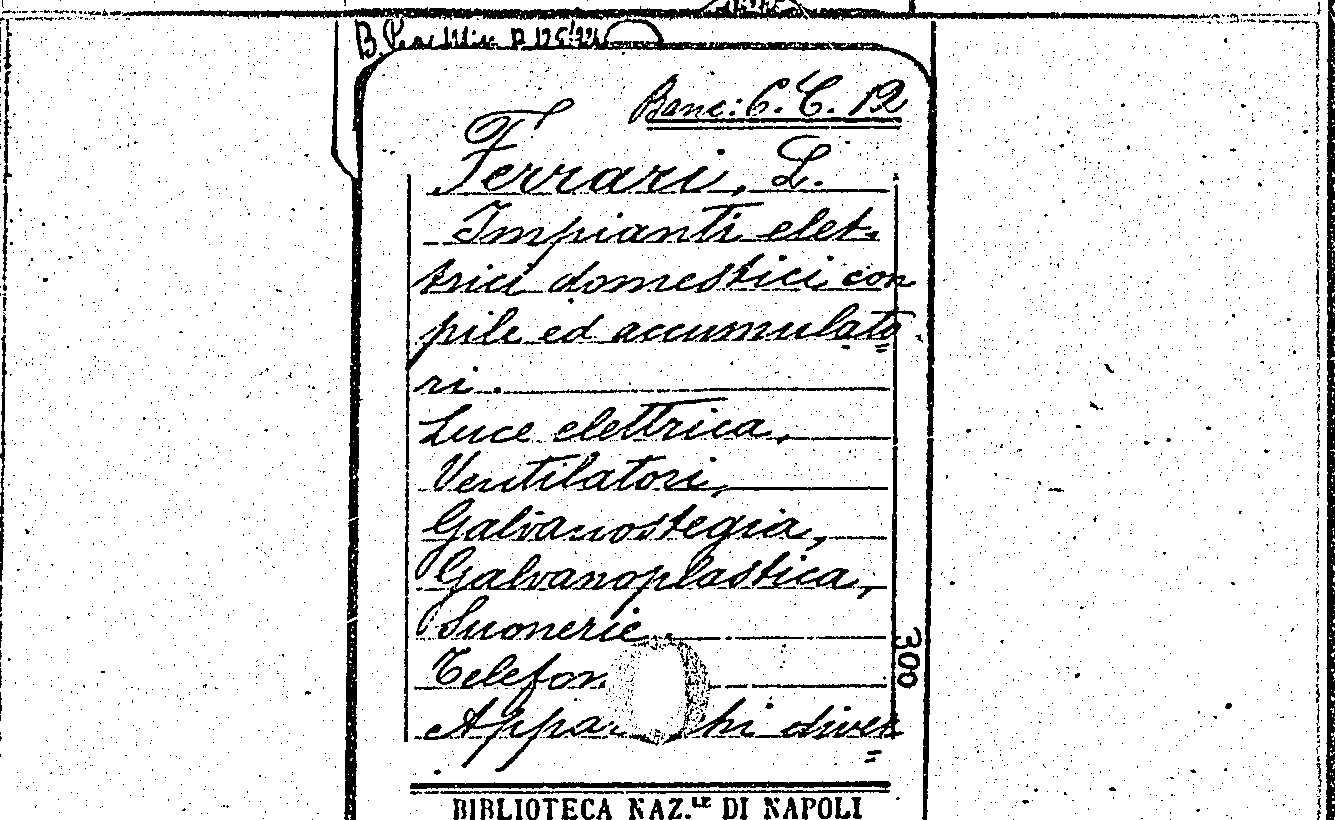 Banc: 6. C. 12
Ferrari, L.
Impianti elet-
trici domestici con
pile ed accumulato
ri.
Luce elettrica,
Ventilatori,
Galvanostegia,
Galvanoplastica,
Suonerie
Telefon
Appar hi diver
300
BIBLIOTECA NAZ.LE DI NAPOLI